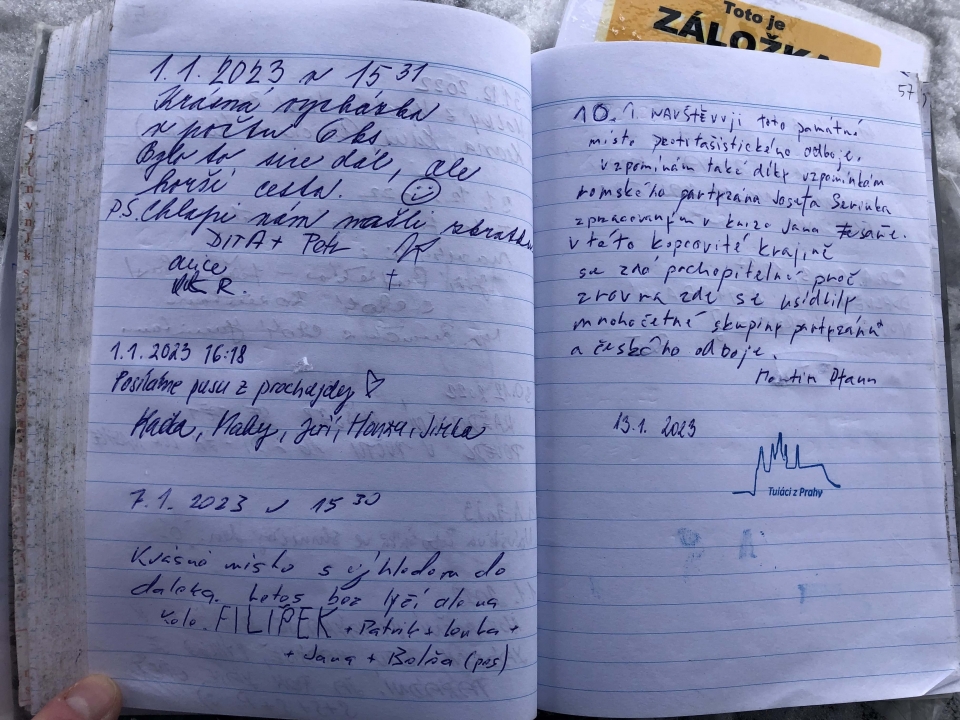 1.1.2023 v 15 31
Krásná vycházka
v počtu 6 ks
Bylo to sice dál, ale
horší cesta. ☺
PS. Chlapi nám našli zkratku
DITA + Petr
alice
R.
1.1.2023 16:18
Posíláme pusu z procházky ♡
Káďa, Jiří, Honza, Jitka
7.1.2023 v 15 30
Krásné místo s výhledem do
daleka. Letos bez lyží ale na
kole. FILÍPEK + Patrik + Lenka +
+ Jana + (pes)
Toto je
ZÁLOŽKA
57
10.1. NAVŠTĚVUJI toto památné
místo protifašistického odboje,
vzpomínám také díky vzpomínkám
romského partyzána Josefa Serinka
zpracovaným v knize Jana Tesaře.
V této kopcovité krajině
se zdá pochopitelné proč
zrovna zde se usídlily
mnohočetné skupiny partyzánů
a českého odboje.
Martin Pfann
13.1. 2023
Tuláci z Prahy